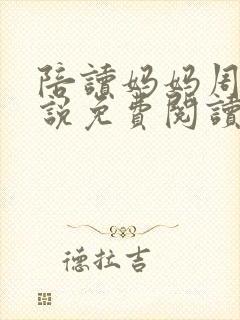 陪讀妈妈周
說免費閱讀
德拉吉